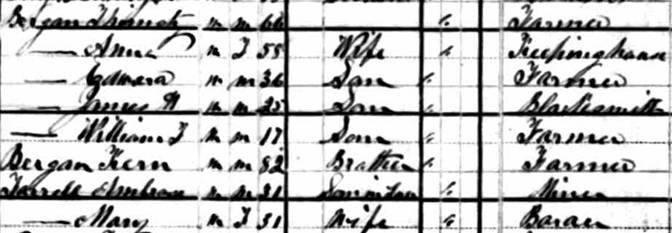 Bergan Thomas m m 66 Farmer
— Anna m F 58 Wife Keeping house
— Edward m m 36 Son Farmer
— James H m m 25 Son Blacksmith
— William F m m 17 Son Farmer
Bergan Kern m m 82 Brother Farmer
Farrell m m 31 Son in Law Miner
— Mary m F 31 Wife